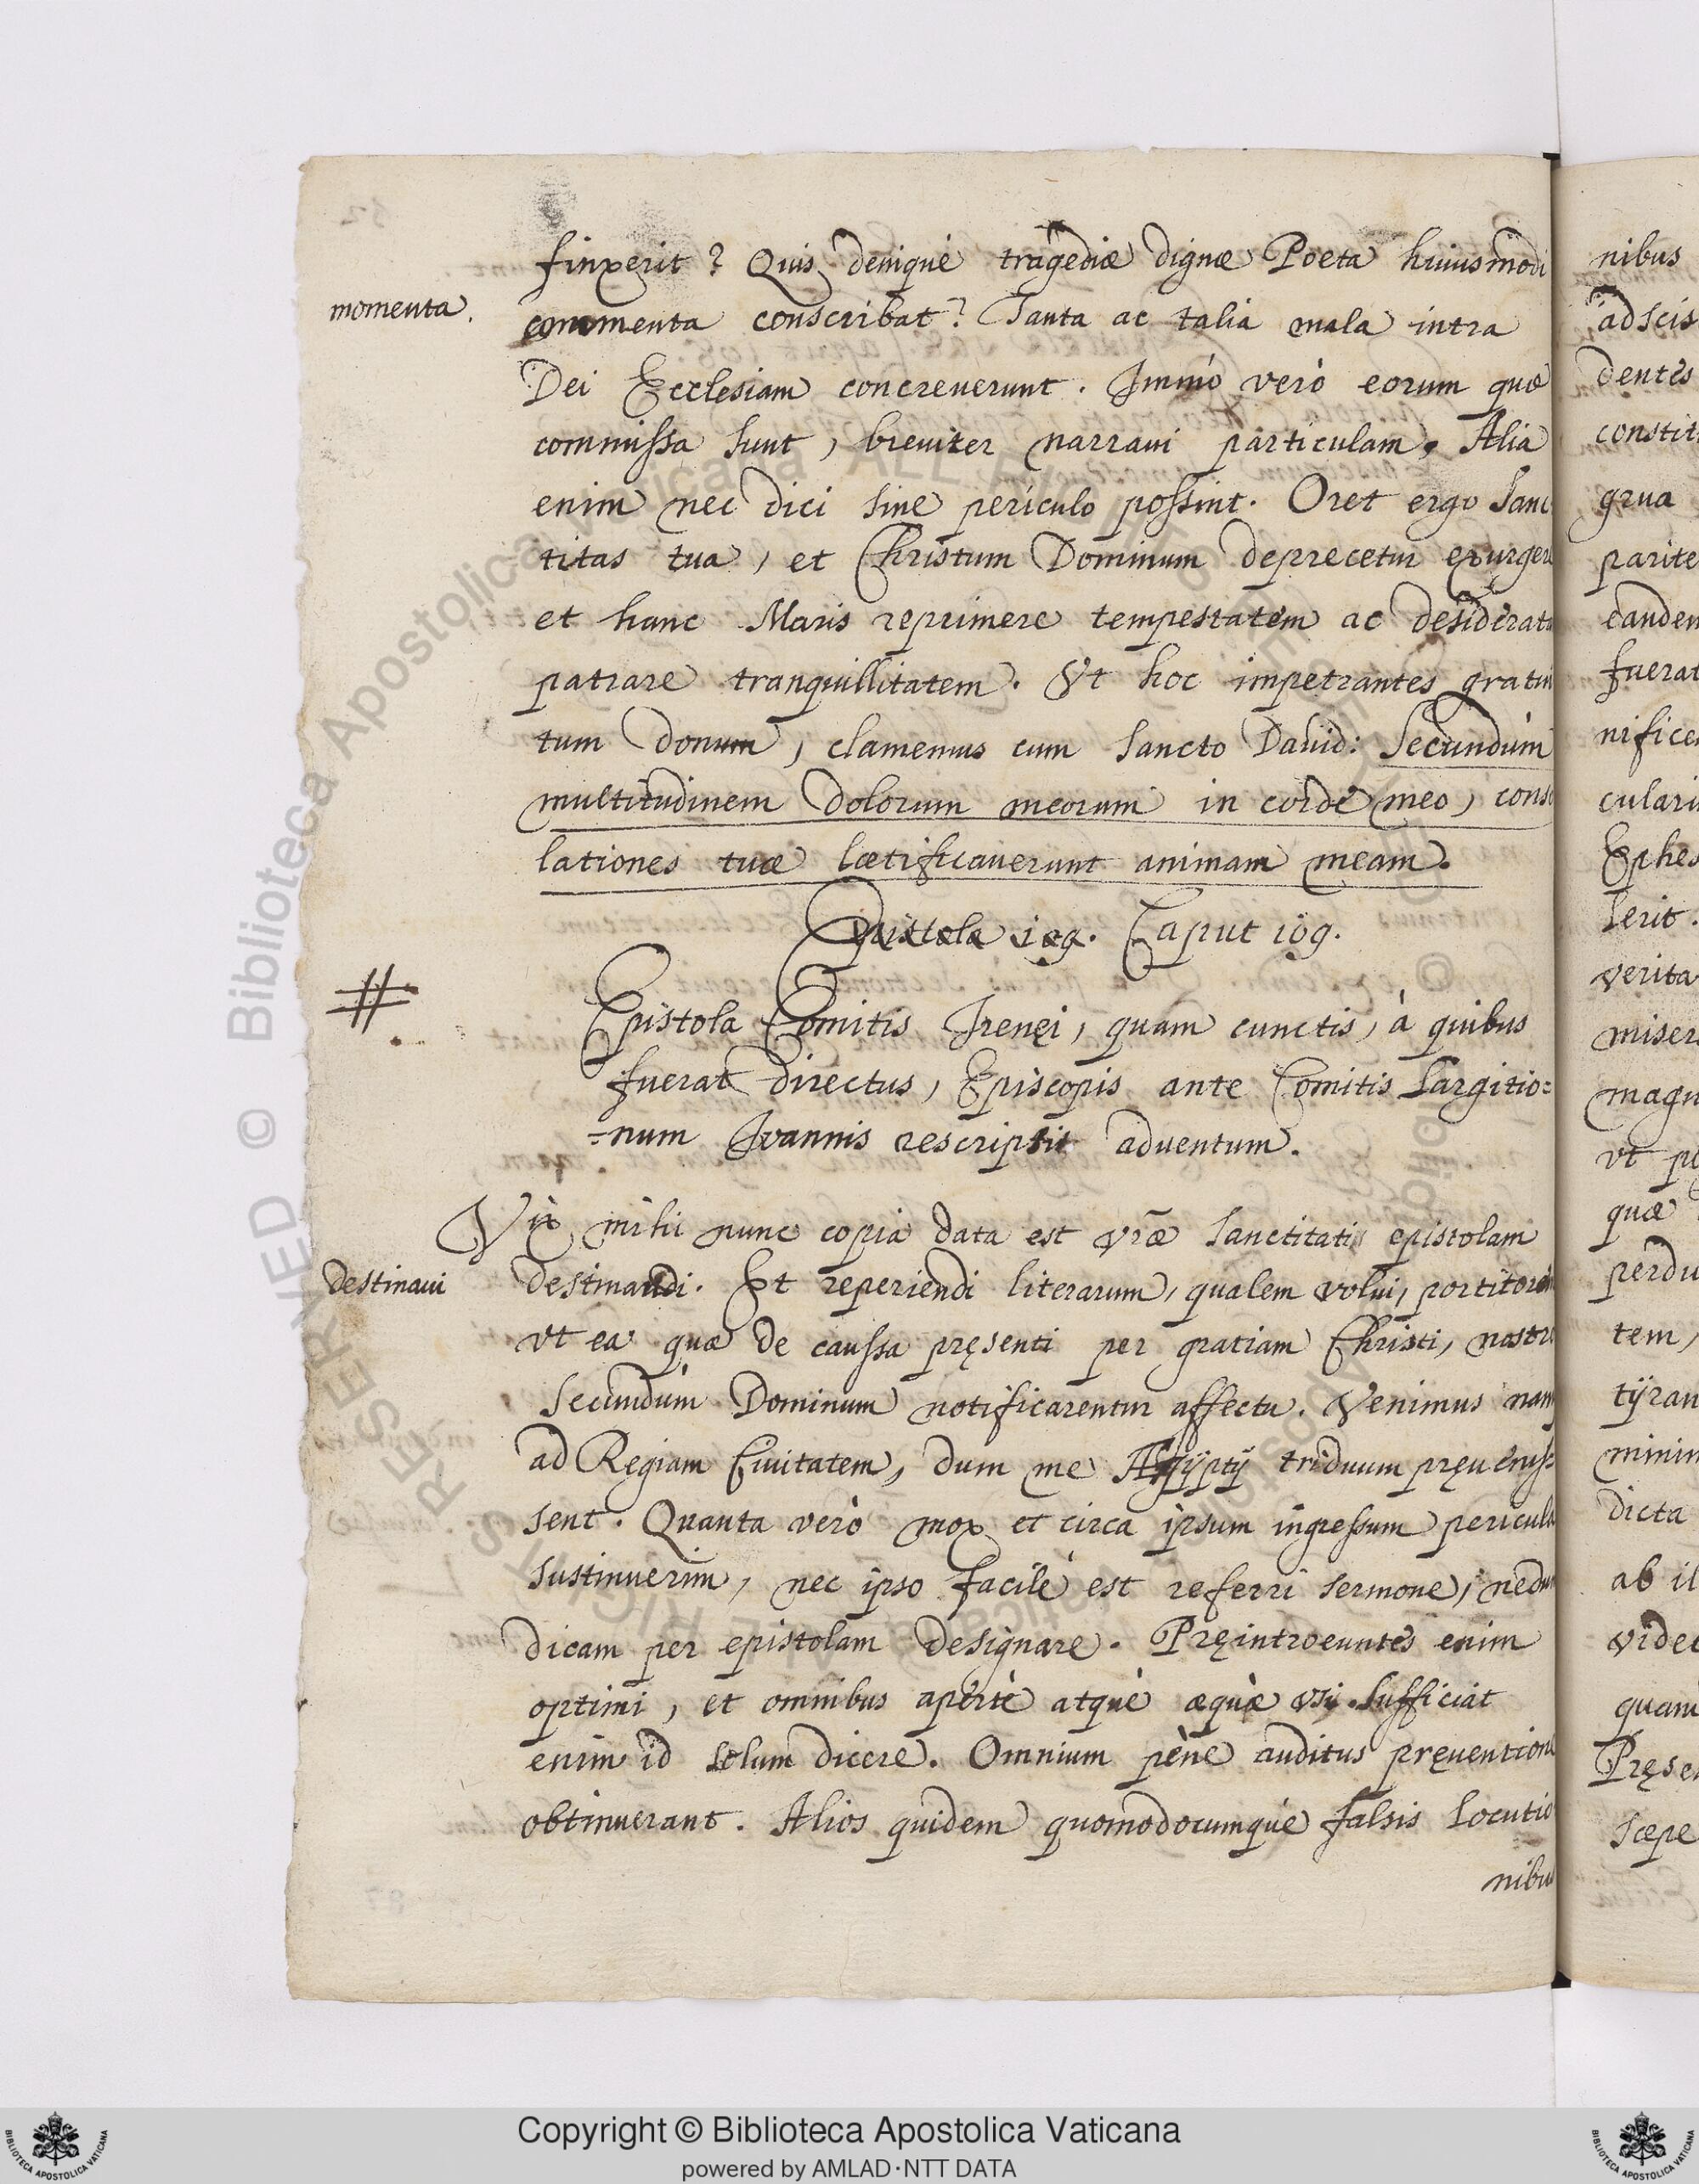 finxerit? Quis deniquè tragediæ dignæ Poeta huiusmodi
momenta.
commenta conscribat? Tanta ac talia mala intra
Dei Ecclesiam concreuerunt. Immò verò eorum quæ
commissa sunt, breuiter narraui particulam. Alia
enim nec dici sine periculo possint. Oret ergo Sanc
titas tua, et Christum Dominum deprecetur exurgere
et hanc Maris reprimere tempestatem ac desiderata
patrare tranquillitatem. Vt hoc impetrantes gratui
tum donum, clamemus cum Sancto Dauid: Secundùm
multitudinem dolorum meorum in corde meo, conso
lationes tuæ lætificauerunt animam meam.
Epistola 109. Caput 109.
#
Epistola Comitis Irenęi, quam cunctis, à quibus
fuerat directus, Episcopis ante Comitis Largitio=
=num Ioannis rescripsit aduentum.
Vix mihi nunc copia data est vr̃æ Sanctitatis epistolam
destinaui
destinandi. Et reperiendi literarum, qualem volui, portitorem
vt ea quæ de caussa pręsenti per gratiam Christi, nostro
Secundùm Dominum notificarentur affectu. Venimus namq
ad Regiam Ciuitatem, dum me Ægÿptÿ triduum pręuenis=
sent. Quanta verò mox et circa ipsum ingressum pericula
sustinuerim, nec ipso facilè est referri sermone, nedum
dicam per epistolam designare. Pręintroeuntes enim
optimi, et omnibus apertè atquè æquè vsi. Sufficiat
enim id solum dicere. Omnium pènè auditus pręuentione
obtinuerant. Alios quidem quomodocumquè falsis locutio
nibus
nibus
adscis
dentes
constit
grua
parite
eandem
fuerat
nifice
cularu
Ephes
Serit.
verita
miser
magn
vt po
quæ
perdu
tem,
tÿran
minim
dicta
ab il
videc
quam
Pręse
Sæpe
Copyright © Biblioteca Apostolica Vaticana
powered by AMLAD·NTT DATA